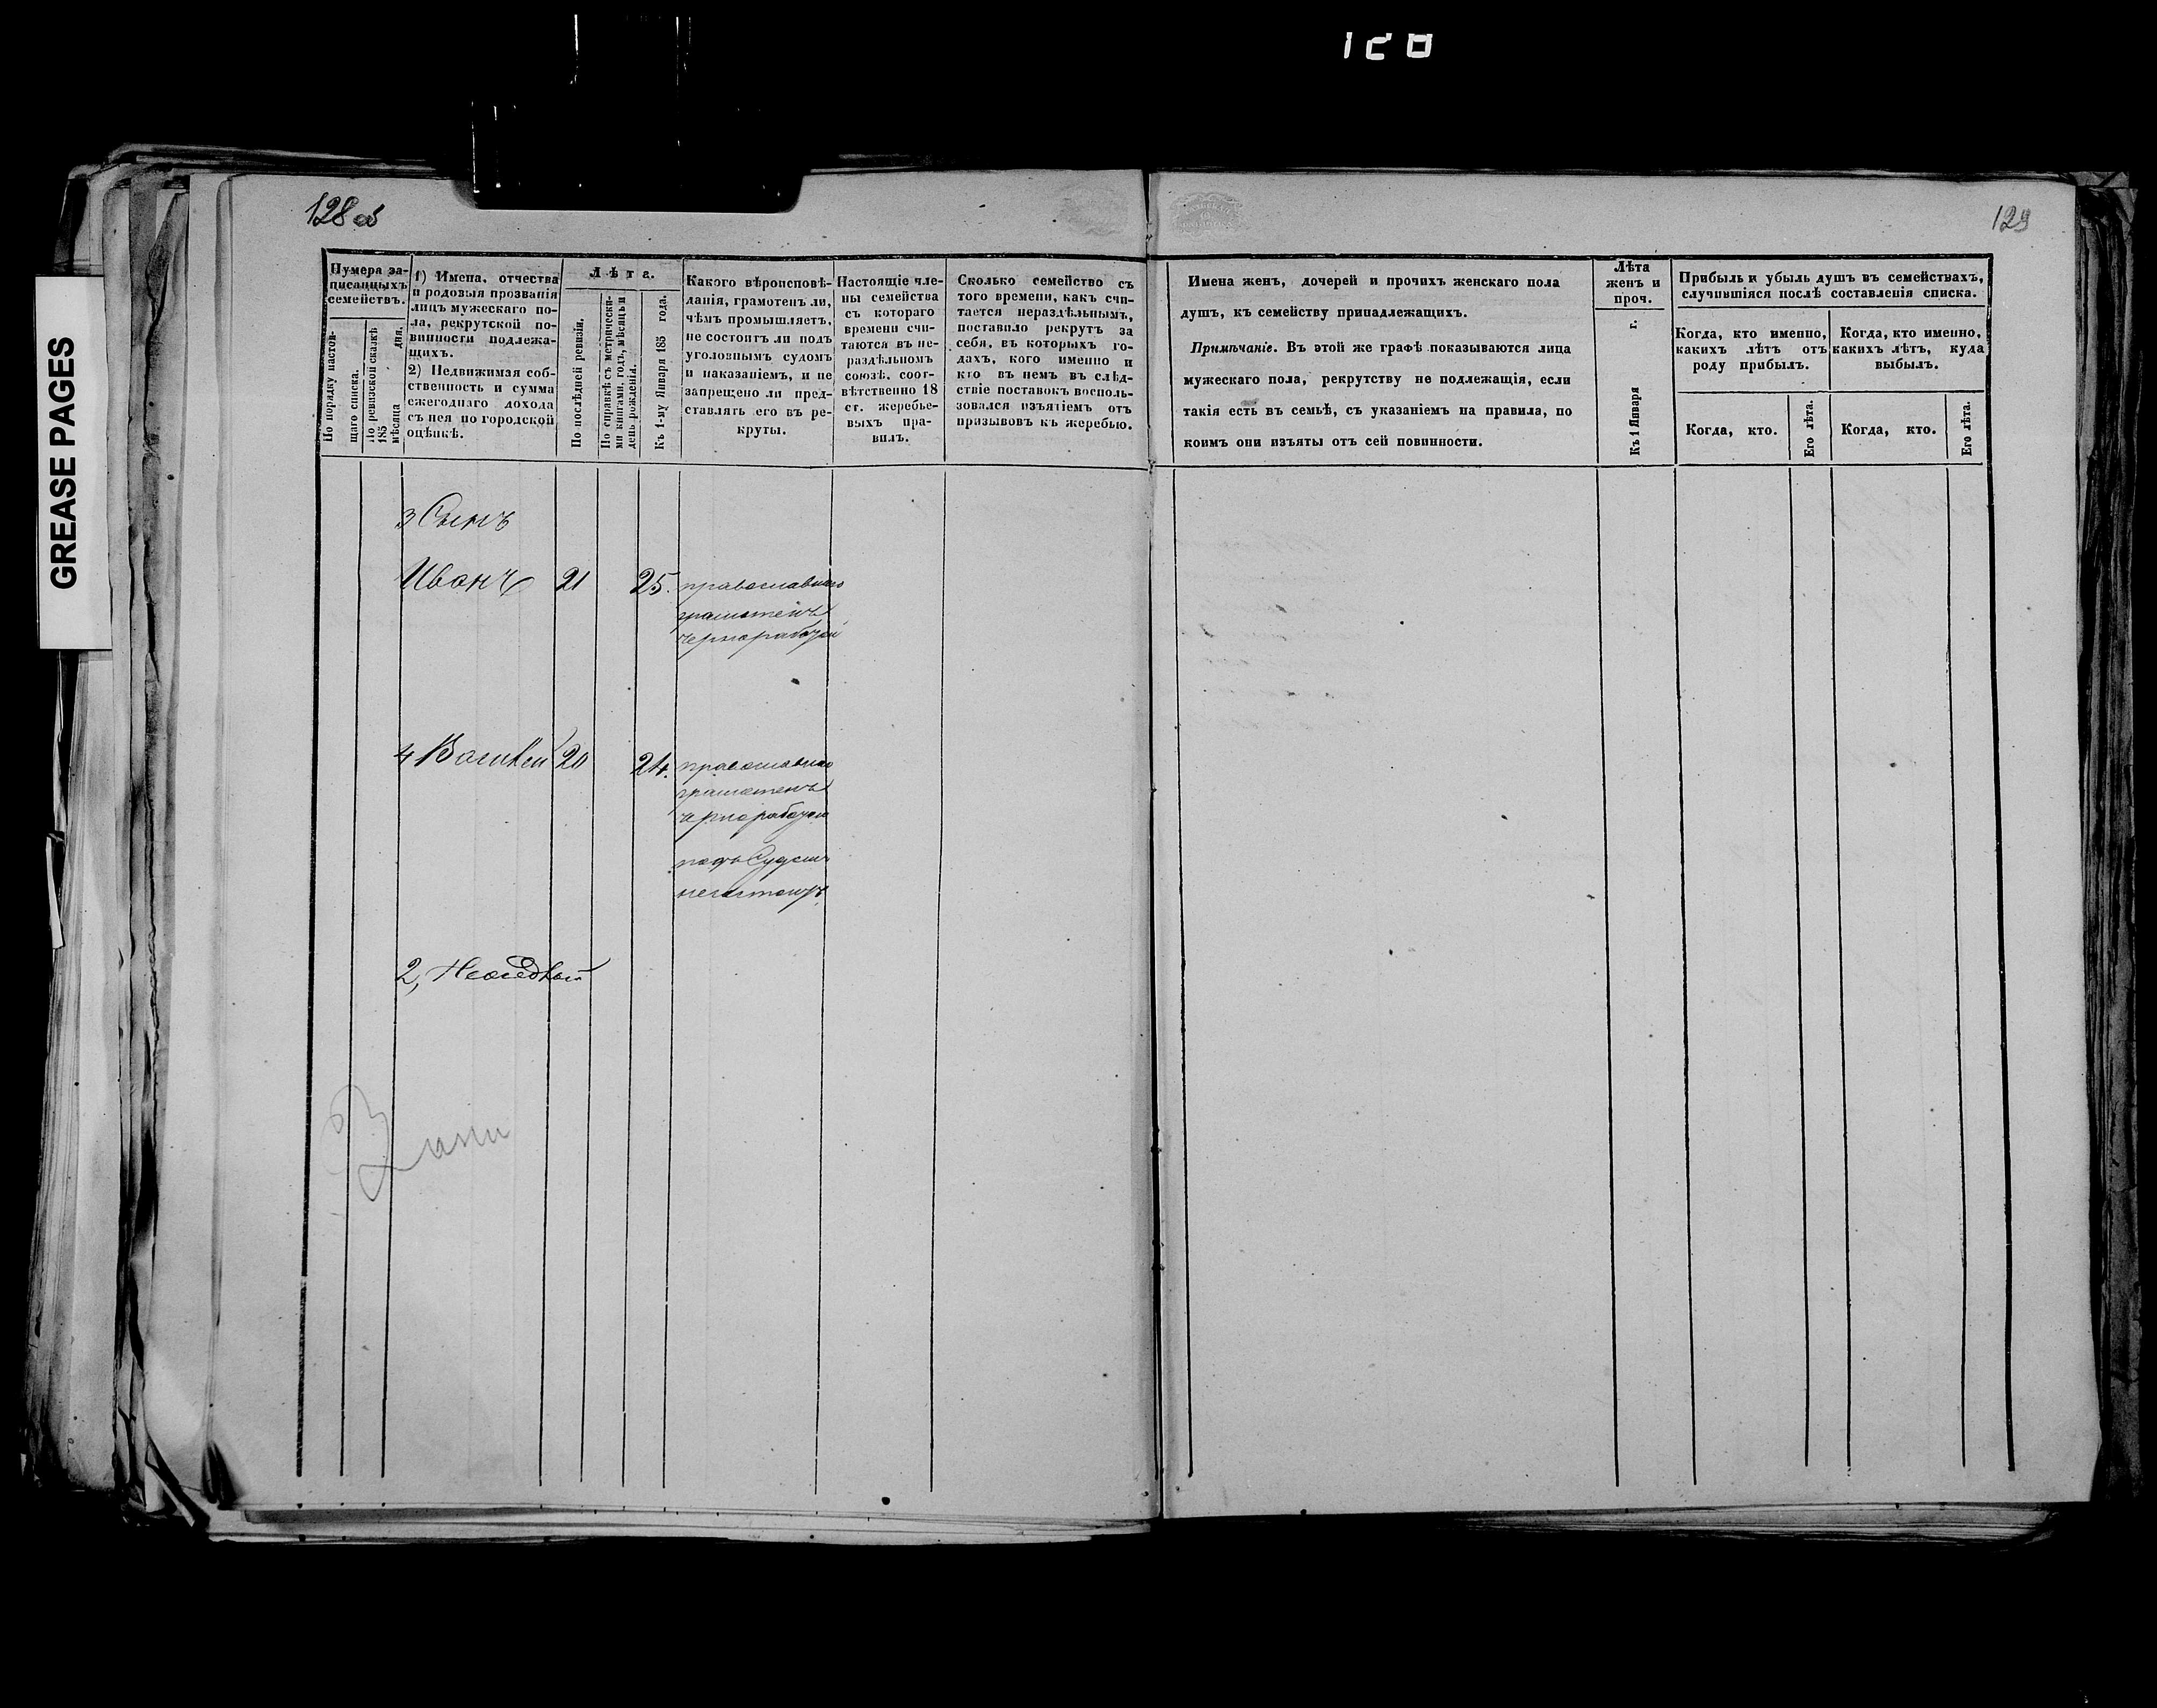 128
GREASE PAGES
128 об
129
Нумера за-
писанныхъ
семействъ.
По порядку настоя-
щаго списка.
По ревизской сказкѣ
185
мѣсяца дня.
1) Имена, отчества
и родовыя прозванія
лицъ мужескаго по-
ла, рекрутской по-
винности подлежа-
щихъ.
2) Недвижимая соб-
ственность и сумма
ежегоднаго дохода
съ нея по городской
оцѣнкѣ.
Лѣта.
По послѣдней ревизіи.
По справкѣ съ метрически-
ми книгами, годъ, мѣсяцъ и
день рожденія.
Къ 1-му Января 185 года.
Какого вѣроисповѣ-
данія, грамотенъ ли,
чѣмъ промышляетъ,
не состоитъ ли подъ
уголовнымъ судомъ
и наказаніемъ, и не
запрещено ли пред-
ставлять его въ ре-
круты.
Настоящіе чле-
ны семейства
съ котораго
времени счи-
таются въ не-
раздѣльномъ
союзѣ. соот-
вѣтственно 18
ст. жеребье-
выхъ пра-
вилъ.
Сколько семейство съ
того времени, какъ счи-
тается нераздѣльнымъ,
поставило рекрутъ за
себя, въ которыхъ го-
дахъ, кого именно и
кто въ немъ въ слѣд-
ствіе поставокъ восполь-
зовался изъятіемъ отъ
призывовъ къ жеребью.
Имена женъ, дочерей и прочихъ женскаго пола
душъ, къ семейству принадлежащихъ.
Примѣчаніе. Въ этой же графѣ показываются лица
мужескаго пола, рекрутству не подлежащія, если
такія есть въ семьѣ, съ указаніемъ на правила, по
коимъ они изъяты отъ сей повинности.
Лѣта
женъ и
проч.
Къ 1 Января г.
Прибыль и убыль душъ въ семействахъ,
случившіяся послѣ составленія списка.
Когда, кто именно,
какихъ лѣтъ отъ
роду прибылъ.
Когда, кто именно,
какихъ лѣтъ, куда
выбылъ.
Когда, кто.
Его лѣта.
Когда, кто.
Его лѣта.
3 Сынъ
Иванъ 21 25. православнаго
грамотенъ
чернорабочій
4 Василій 20 24. православнаго
грамотенъ
чернорабочій
подъ Судомъ
несостоитъ
2,